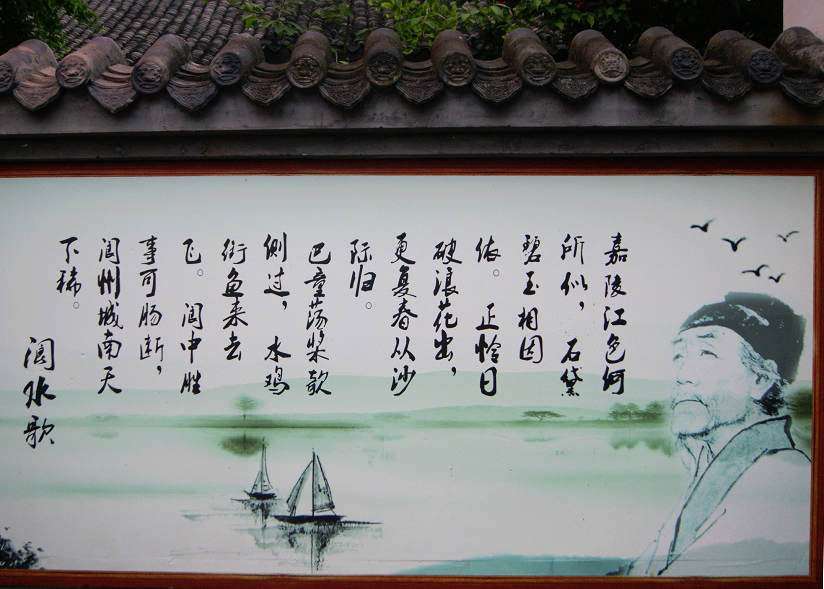 嘉陵江色何
所似，石黛
碧玉相因
依。正怜日
破浪花出，
更复春从沙
际归。
巴童荡桨欹
侧过，水鸡
衔鱼来去
飞。阆中胜
事可肠断，
阆州城南天
下稀。
阆水歌